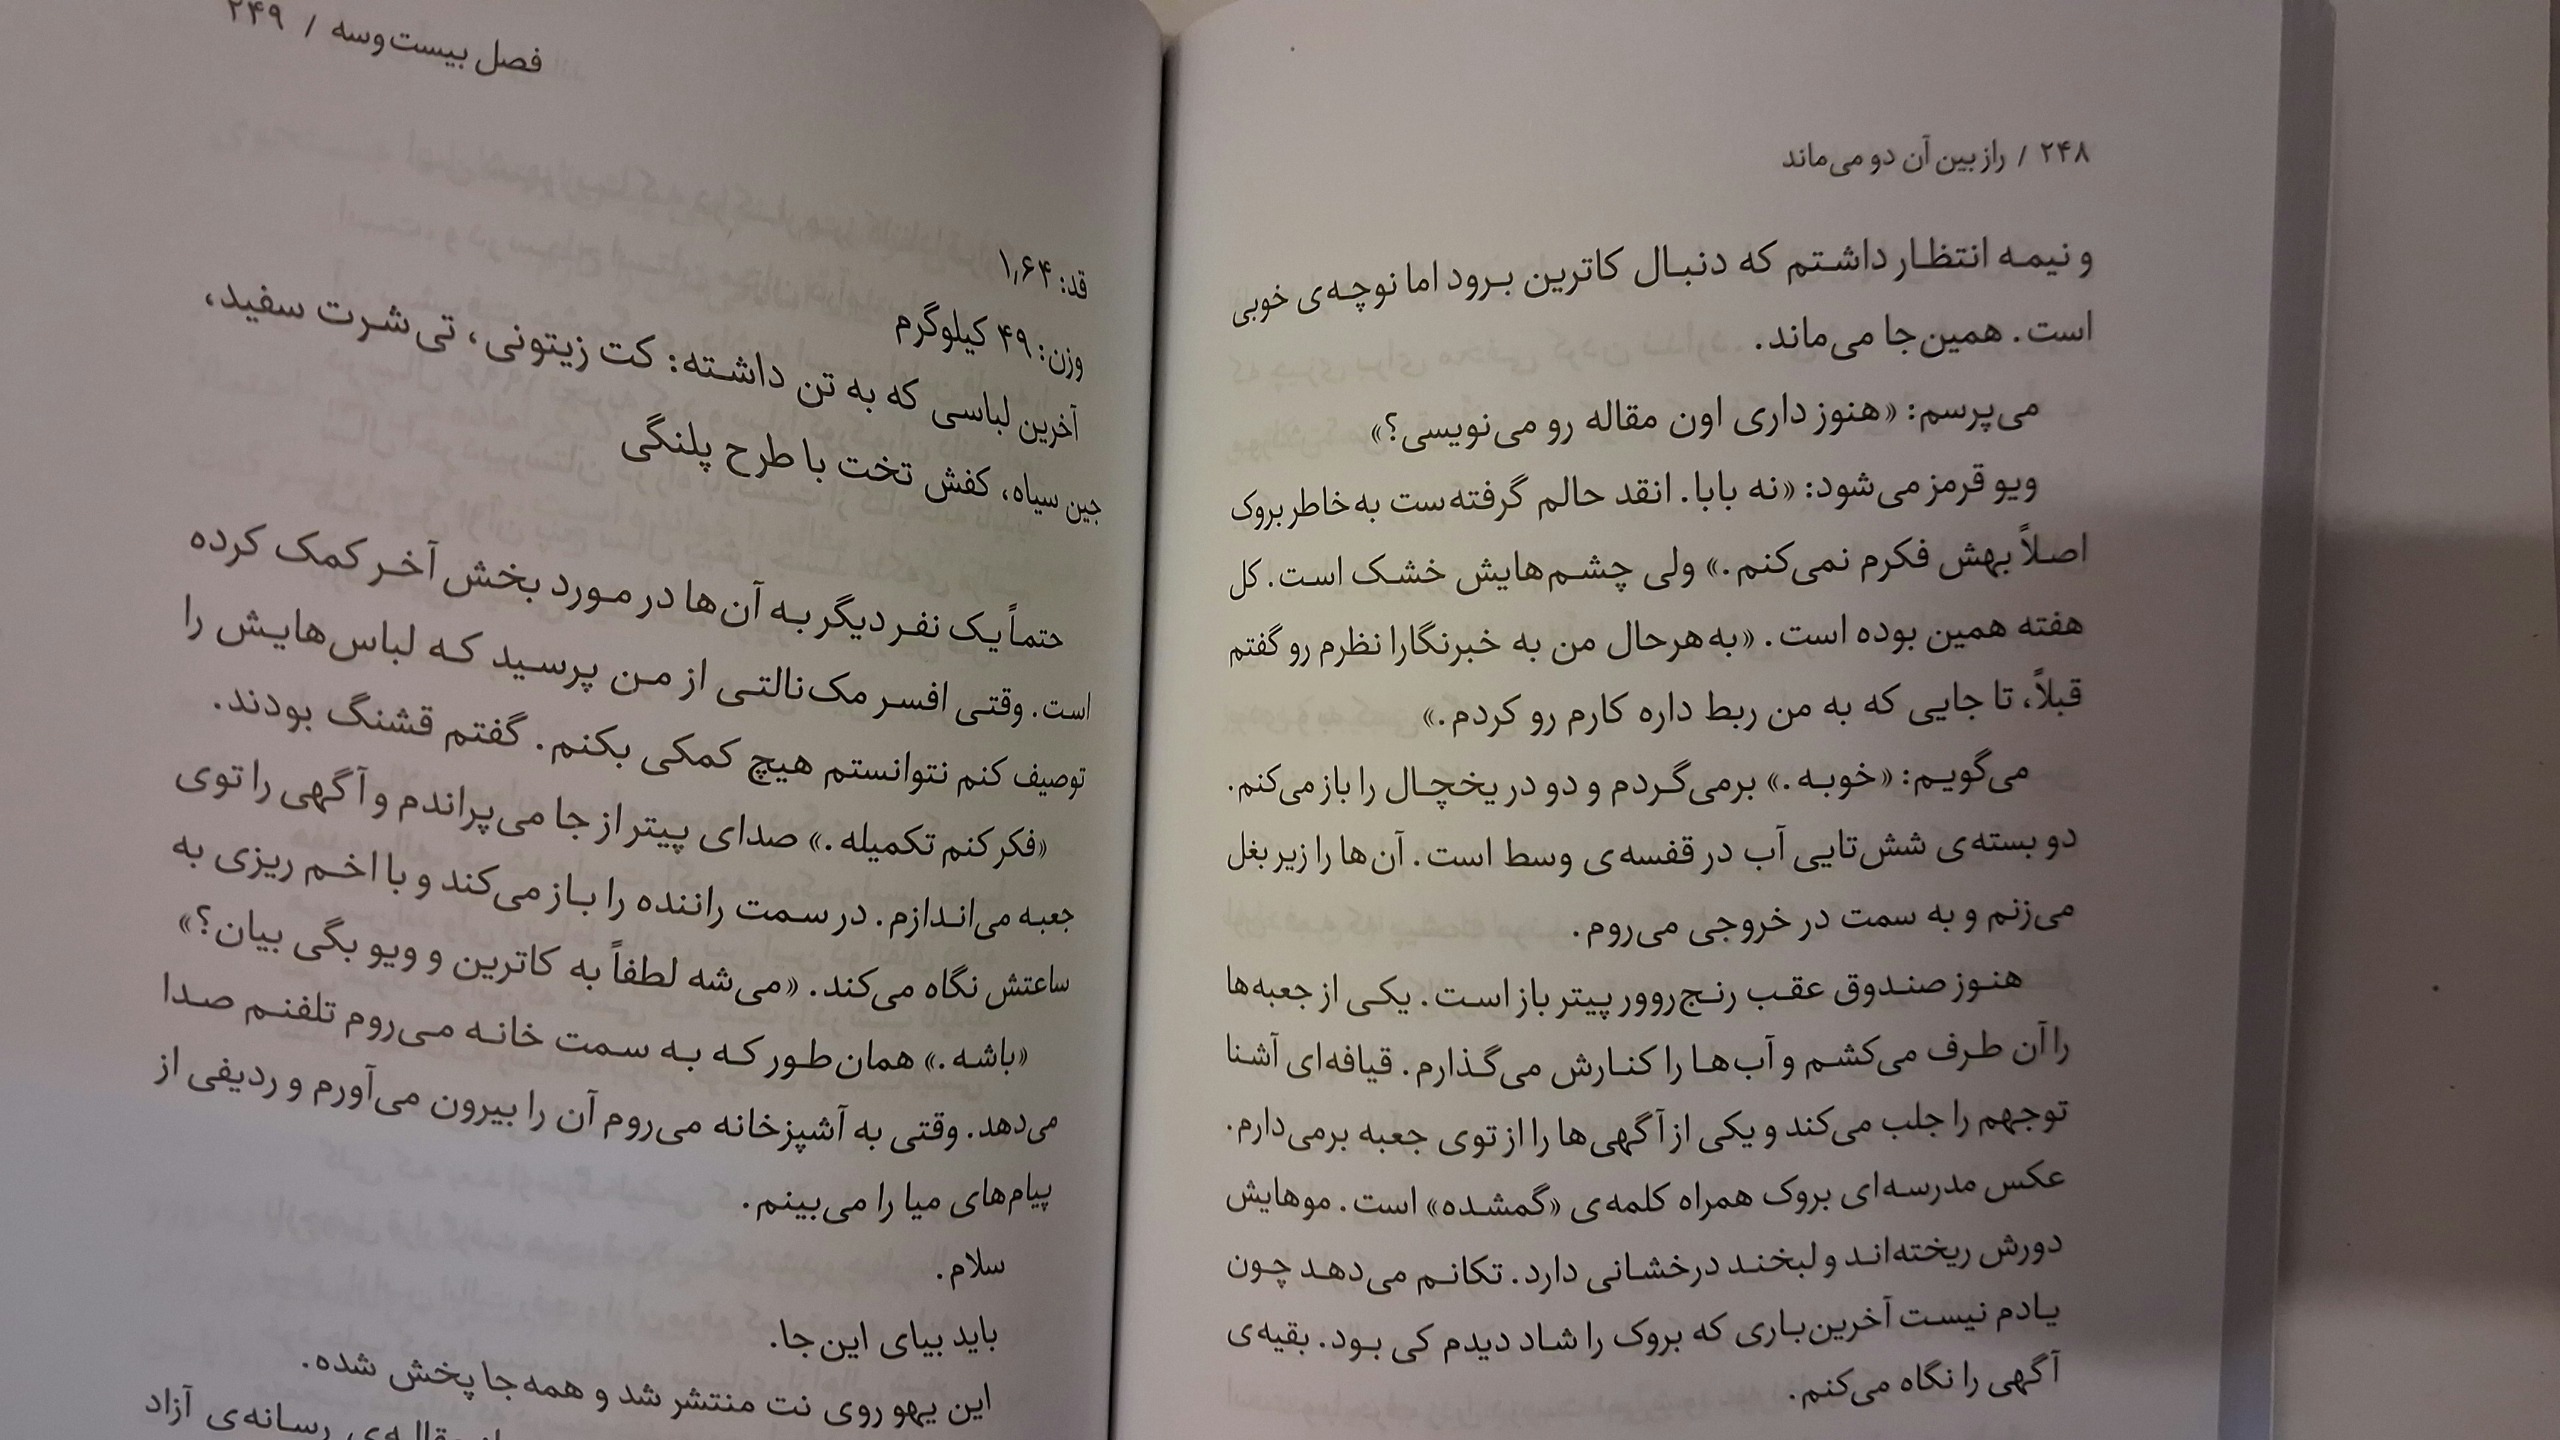 ۲۴۸ / راز بین آن دو می‌ماند
و نیمه انتظار داشتم که دنبال کاترین برود اما نوچه‌ی خوبی
است. همین‌جا می‌ماند.
می‌پرسم: «هنوز داری اون مقاله رو می‌نویسی؟»
ویو قرمز می‌شود: «نه بابا. انقد حالم گرفته‌ست به‌خاطر بروک
اصلاً بهش فکرم نمی‌کنم.» ولی چشم‌هایش خشک است. کل
هفته همین بوده است. «به‌هرحال من به خبرنگارا نظرم رو گفتم
قبلاً، تا جایی که به من ربط داره کارم رو کردم.»
می‌گویم: «خوبه.» برمی‌گردم و دو در یخچال را باز می‌کنم.
دو بسته‌ی شش‌تایی آب در قفسه‌ی وسط است. آن‌ها را زیر بغل
می‌زنم و به سمت در خروجی می‌روم.
هنوز صندوق عقب رنج‌روور پیتر باز است. یکی از جعبه‌ها
را آن طرف می‌کشم و آب‌ها را کنارش می‌گذارم. قیافه‌ای آشنا
توجهم را جلب می‌کند و یکی از آگهی‌ها را از توی جعبه برمی‌دارم.
عکس مدرسه‌ای بروک همراه کلمه‌ی «گمشده» است. موهایش
دورش ریخته‌اند و لبخند درخشانی دارد. تکانم می‌دهد چون
یادم نیست آخرین‌باری که بروک را شاد دیدم کی بود. بقیه‌ی
آگهی را نگاه می‌کنم.
فصل بیست‌وسه / ۲۴۹
قد: ۱٫۶۴
وزن: ۴۹ کیلوگرم
آخرین لباسی که به تن داشته: کت زیتونی، تی‌شرت سفید،
جین سیاه، کفش تخت با طرح پلنگی
حتماً یک نفر دیگر به آن‌ها در مورد بخش آخر کمک کرده
است. وقتی افسر مک‌نالتی از من پرسید که لباس‌هایش را
توصیف کنم نتوانستم هیچ کمکی بکنم. گفتم قشنگ بودند.
«فکر کنم تکمیله.» صدای پیتر از جا می‌پراندم و آگهی را توی
جعبه می‌اندازم. در سمت راننده را باز می‌کند و با اخم ریزی به
ساعتش نگاه می‌کند. «می‌شه لطفاً به کاترین و ویو بگی بیان؟»
«باشه.» همان‌طور که به سمت خانه می‌روم تلفنم صدا
می‌دهد. وقتی به آشپزخانه می‌روم آن را بیرون می‌آورم و ردیفی از
پیام‌های میا را می‌بینم.
سلام.
باید بیای این‌جا.
این یهو روی نت منتشر شد و همه‌جا پخش شده.
مقاله‌ی رسانه‌ی آزاد